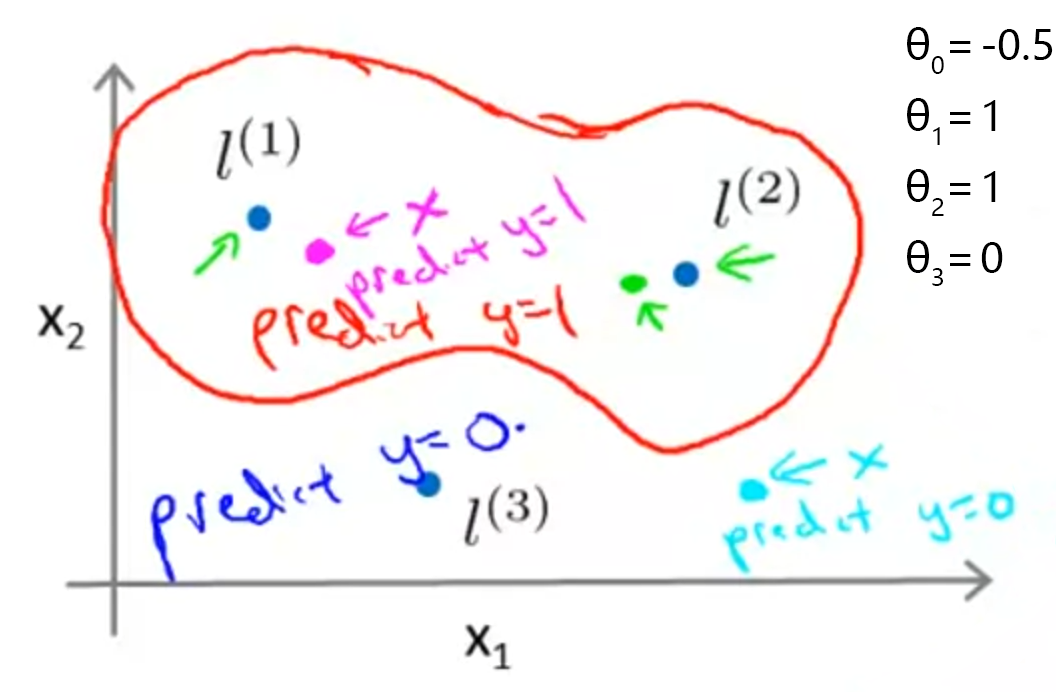 θ₀ = -0.5
θ₁ = 1
θ₂ = 1
θ₃ = 0
l⁽¹⁾
l⁽²⁾
← x
predict y=1
predict y=1
x₂
predict y=0.
l⁽³⁾
← x
predict y=0
x₁